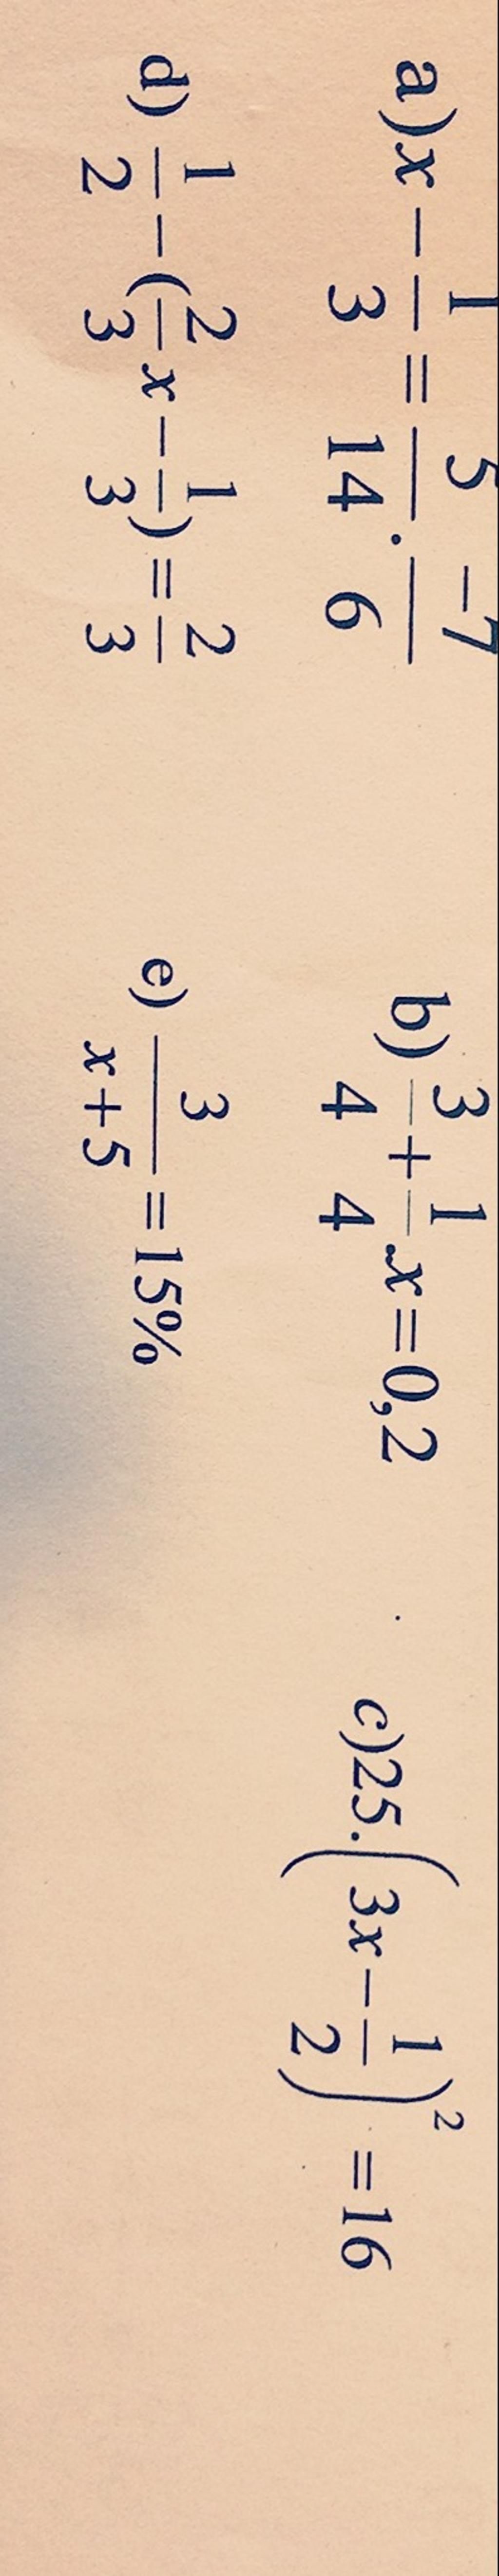 a) x − 1/3 = 5/14 . −7/6 b) 3/4 + 1/4 x = 0,2 c) 25. (3x − 1/2)² = 16
d) 1/2 − (2/3 x − 1/3) = 2/3 e) 3/(x+5) = 15%